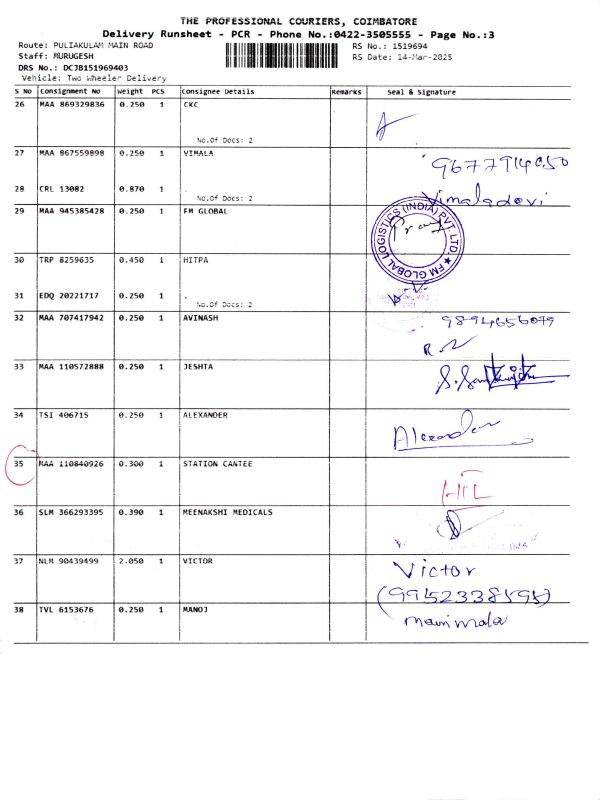 THE PROFESSIONAL COURIERS, COIMBATORE
Delivery Runsheet - PCR - Phone No.:0422-3505555 - Page No.:3
Route: PULIAKULAM MAIN ROAD
RS No.: 1519694
Staff: MURUGESH
RS Date: 14-Mar-2025
DRS No.: DCJB151969403
Vehicle: Two Wheeler Delivery
S NO Consignment No Weight PCS Consignee Details Remarks Seal & Signature
26 MAA 869329836 0.250 1 CKC
No.Of Docs: 2
27 MAA 867559898 0.250 1 VIMALA
9677914050
28 CRL 13082 0.870 1 .
No.Of Docs: 2
Vimaladevi
29 MAA 945385428 0.250 1 FM GLOBAL
FM GLOBAL LOGISTICS (INDIA) PVT. LTD.
30 TRP 8259635 0.450 1 HITPA
31 EDQ 20221717 0.250 1 .
No.Of Docs: 2
32 MAA 707417942 0.250 1 AVINASH
9894656099
R.
33 MAA 110572888 0.250 1 JESHTA
34 TSI 406715 0.250 1 ALEXANDER
Alexander
35 MAA 110840926 0.300 1 STATION CANTEE
HTL
36 SLM 366293395 0.390 1 MEENAKSHI MEDICALS
37 NLM 90439499 2.050 1 VICTOR
Victor
38 TVL 6153676 0.250 1 MANOJ